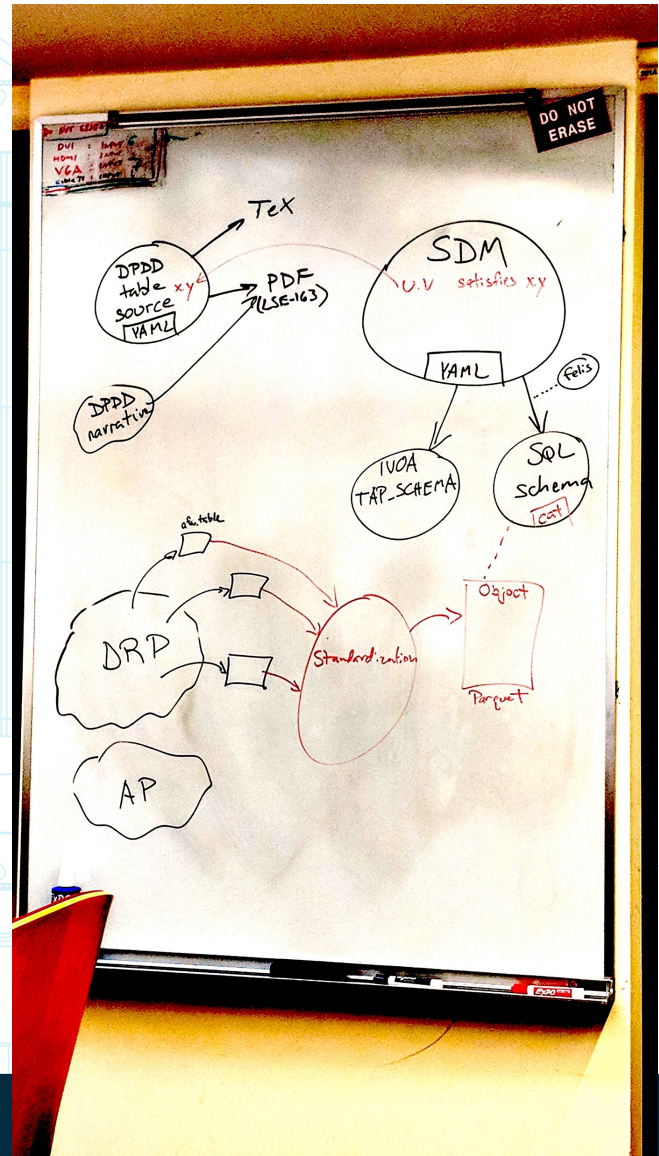 DO NOT ERASE
DVI : INPUT 6
HDMI : INPUT
VGA : INPUT 7
DO NOT
ERASE
TeX
DPDD
table xy
source
YAML
PDF
(LSE-163)
DPDD
narrative
SDM
U.V satisfies xy
YAML
felis
IVOA
TAP_SCHEMA
SQL
schema
cat
afw.table
DRP
Standardization
Object
Parquet
AP
EXPO